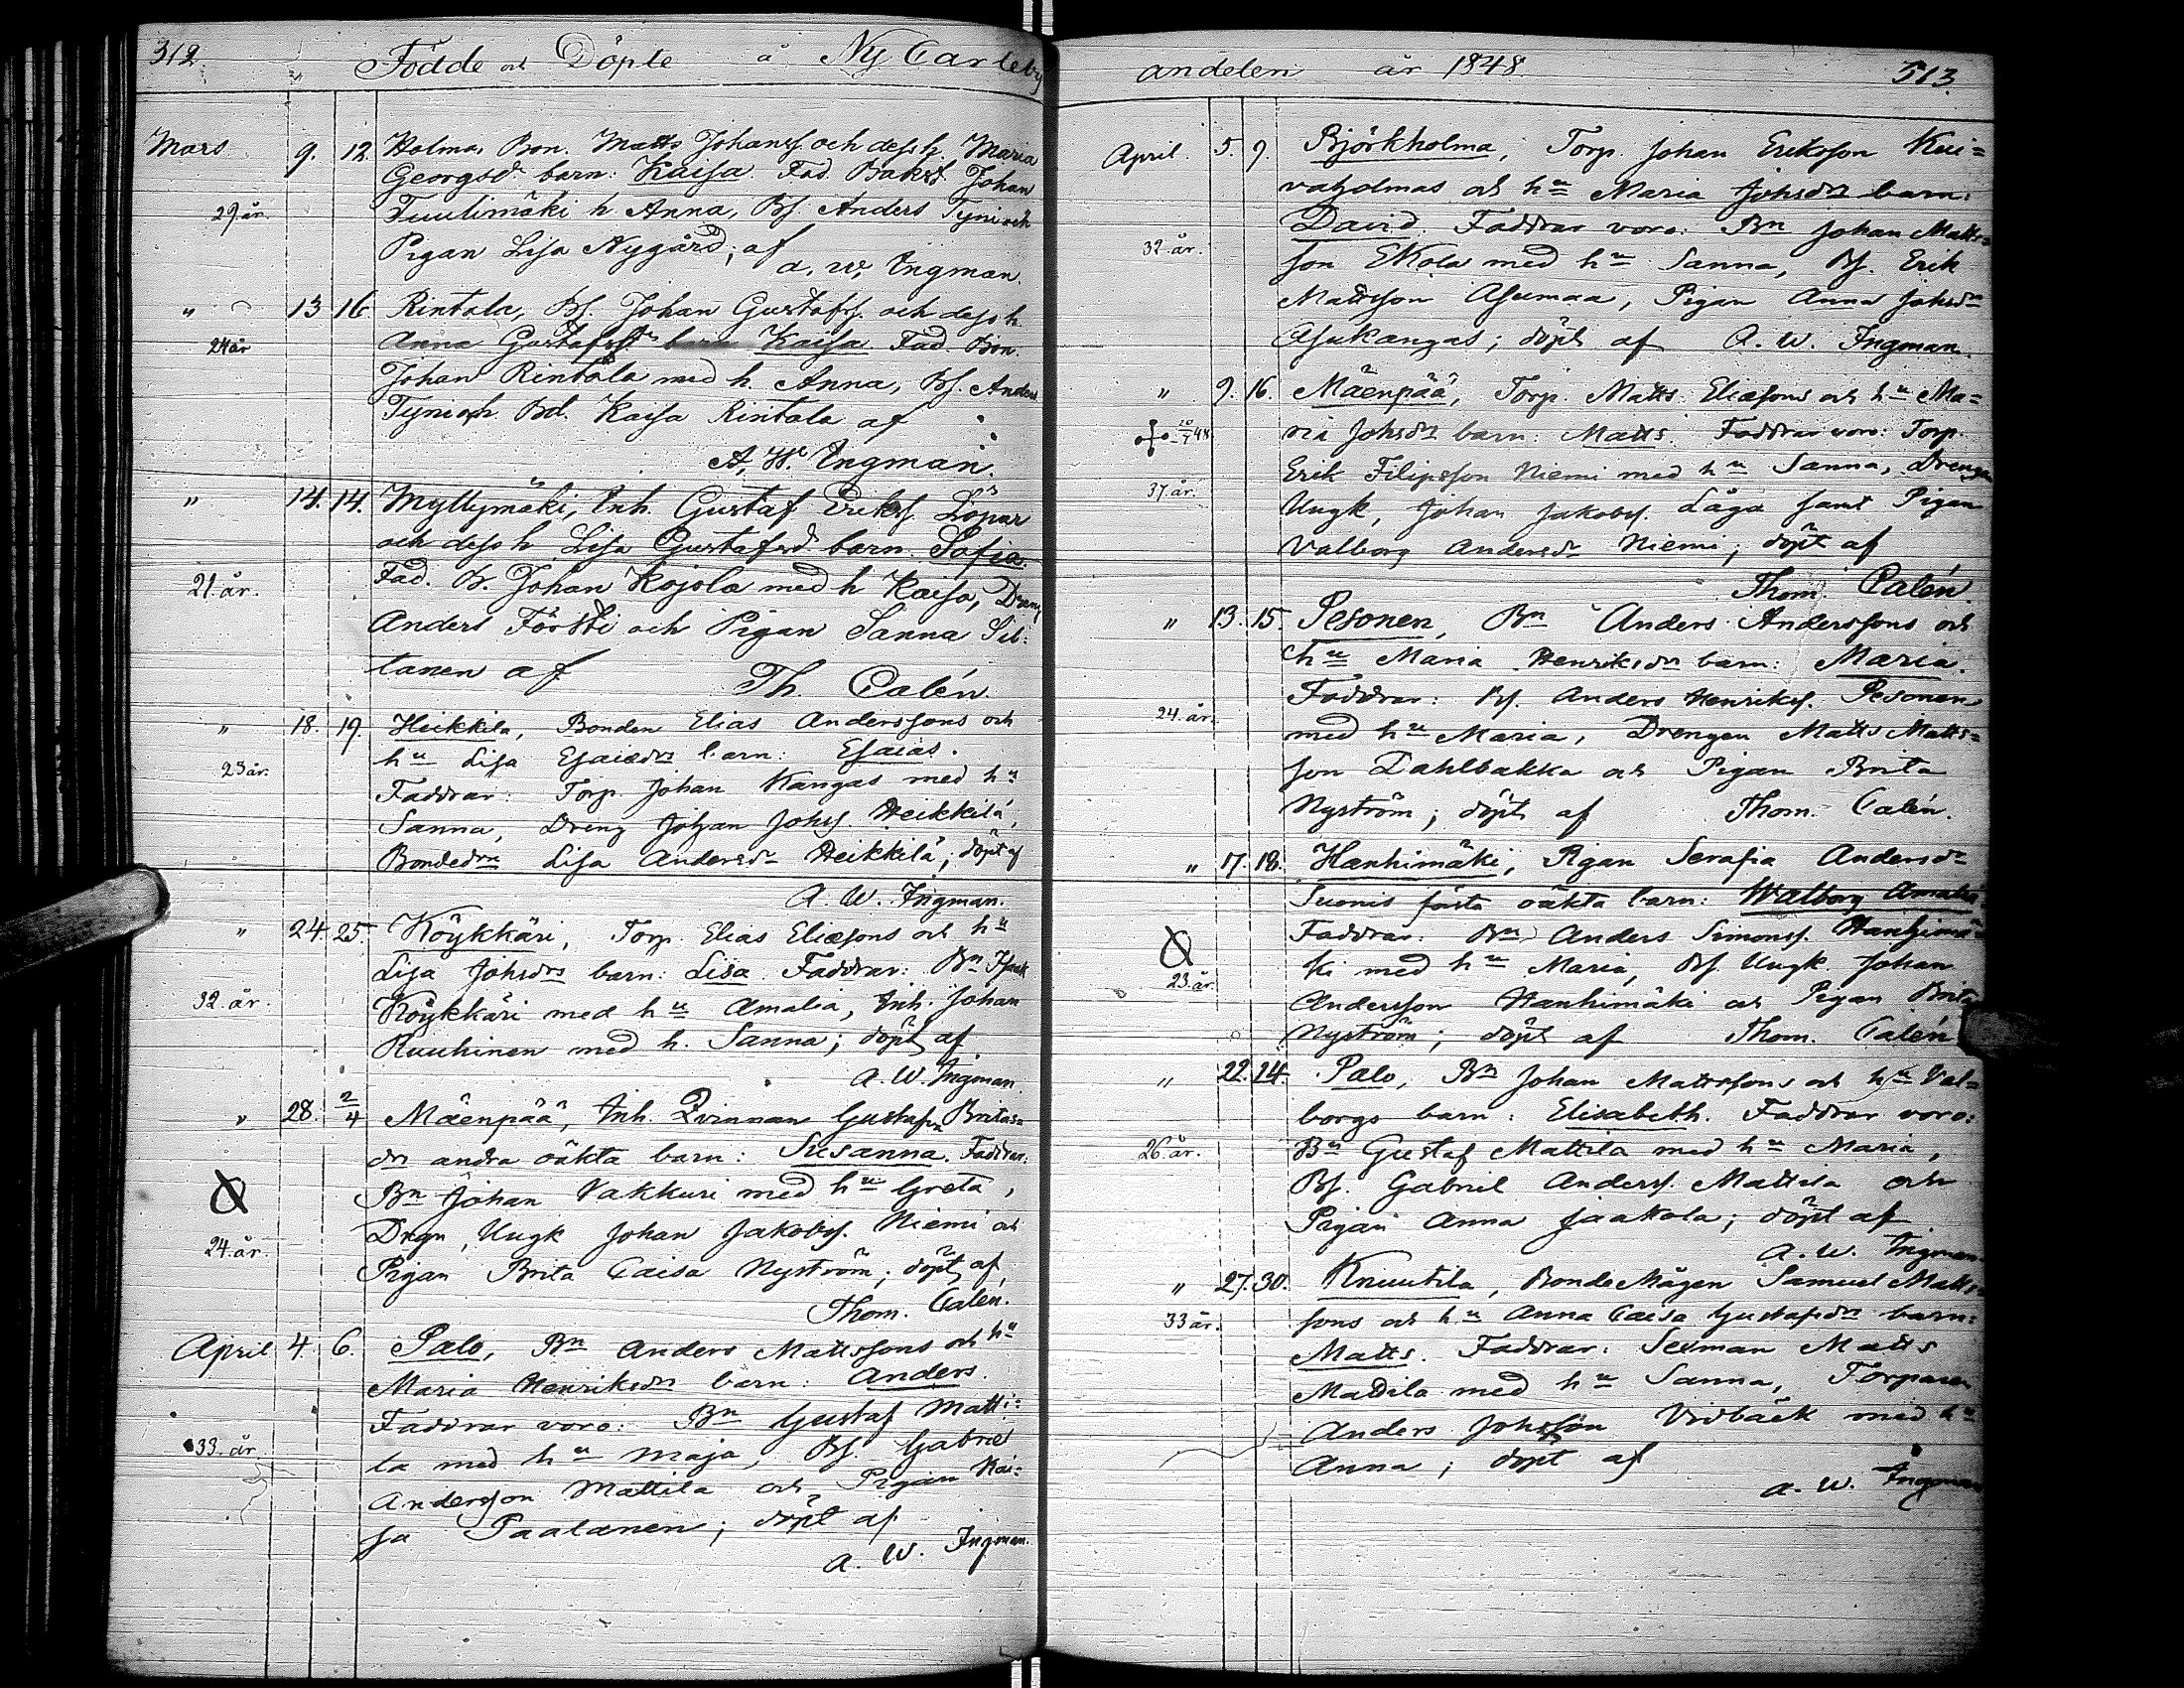 312. Födde och Döpte å Ny Carleby
Mars 9. 12 Holma, Bon. Matts Johanss. och dess h. Maria
Georgsdr barn: Kaisa Fad. Johan
29 år. Tuulimäki h. Anna, Bs. Anders Tyni och
Pigan Lisa Nygård; af
A. W. Ingman.
" 13 16 Rintala, Bs. Johan Gustafs. och dess h.
24 år Anna Gustafsdr barn Kaisa Fad. Bon.
Johan Rintala med h. Anna, Bs. Anders
Tyni och Bd. Kaisa Rintala af
A. W. Ingman.
" 14. 14. Myllymäki, Inh. Gustaf Eriks. Löpar
och dess h Lisa Gustafsd barn. Sofia.
21. år. Fad. B. Johan Kojola med h Kaisa, Dreng
Anders Förtti och Pigan Sanna Sil-
tanen af Th. Calén
" 18. 19. Heikkila, Bonden Elias Anderssons och
hu Lisa Esaiædr barn: Esaias.
23 år. Faddrar: Torp. Johan Kangas med hu
Sanna, Dreng Johan Johss. Heikkilä,
Bondedrn Lisa Andersdr Heikkilä; döpt af
A. W. Ingman.
" 24. 25. Köykkäri, Torp. Elias Eliæsons och hu
Lisa Johsdrs barn: Lisa. Faddrar: Bn Isaak
32. år. Köykkäri med hu Amalia, Inh. Johan
Ruuhinen med h. Sanna; döpt af
A. W. Ingman
" 28. 2/4 Mäenpää, Inh. Qvinnan Gustafva Britas=
drs andra oäkta barn: Susanna. Faddrar:
Bn Johan Vakkuri med hu Greta,
24. år. Drgn, Ungk Johan Jakobss. Niemi och
Pigan Brita Caisa Nyström; döpt af,
Thom. Calén.
April 4. 6. Palo, Bn Anders Mattssons och hu
Maria Henriksdrs barn: Anders.
Faddrar voro: Bn Gustaf Matti=
33. år. la med hu Maja, Bs. Gabriel
Andersson Mattila och Pigan Kai=
sa Paalanen; döpt af
A. W. Ingman.
andelen år 1848 513.
April. 5. 9. Björkholma, Torp. Johan Eriksson Kui=
vaholmas och hu Maria Johsdrs barn:
32. år. David. Faddrar voro: Bn Johan Matts=
son Ekola med hu Sanna, Bs. Erik
Mattsson Asumaa, Pigan Anna Johsdr
Asukangas; döpt af A. W. Ingman.
" 9. 16. Mäenpää, Torp. Matts Eliæsons och hu Ma=
ria Johsdrs barn: Matts. Faddrar voro: Torp.
Erik Filipsson Niemi med hu Sanna, Drengen
37. år. Ungk, Johan Jakobss. Låga samt Pigan
Valborg Andersdr Niemi; döpt af
Thom. Calén.
" 13. 15. Pesonen, Bn Anders Anderssons och
hu Maria Henriksdrs barn: Maria.
Faddrar: Bs. Anders Henrikss. Pesonen
24. år. med hu Maria, Drengen Matts Matts=
son Dahlbakka och Pigan Brita
Nyström; döpt af Thom. Calén.
" 17. 18. Hanhimäki, Pigan Serafia Andersdr
Suonis första oäkta barn: Walborg Amalia
Faddrar: Bn Anders Simonss. Hanhimä=
23. år. ki med hu Maria, Bs. Ungk. Johan
Andersson Hanhimäki och Pigan Brita
Nyström; döpt af Thom. Calén
" 22. 24. Palo, Bn Johan Mattssons och hu Val=
borgs barn: Elisabeth. Faddrar voro:
26. år. Bn Gustaf Mattila med hu Maria,
Bs. Gabriel Anderss. Mattila och
Pigan Anna Jaakola; döpt af
A. W. Ingman
" 27. 30. Knuutila, Bonde Mågen Samuel Matts=
33 år. sons och hu Anna Caisa Gustafsdrs barn:
Matts. Faddrar: Sexman Matts
Mattila med hu Sanna, Torparen
Anders Johsson Vidbäck med hu
Anna; döpt af
A. W. Ingman